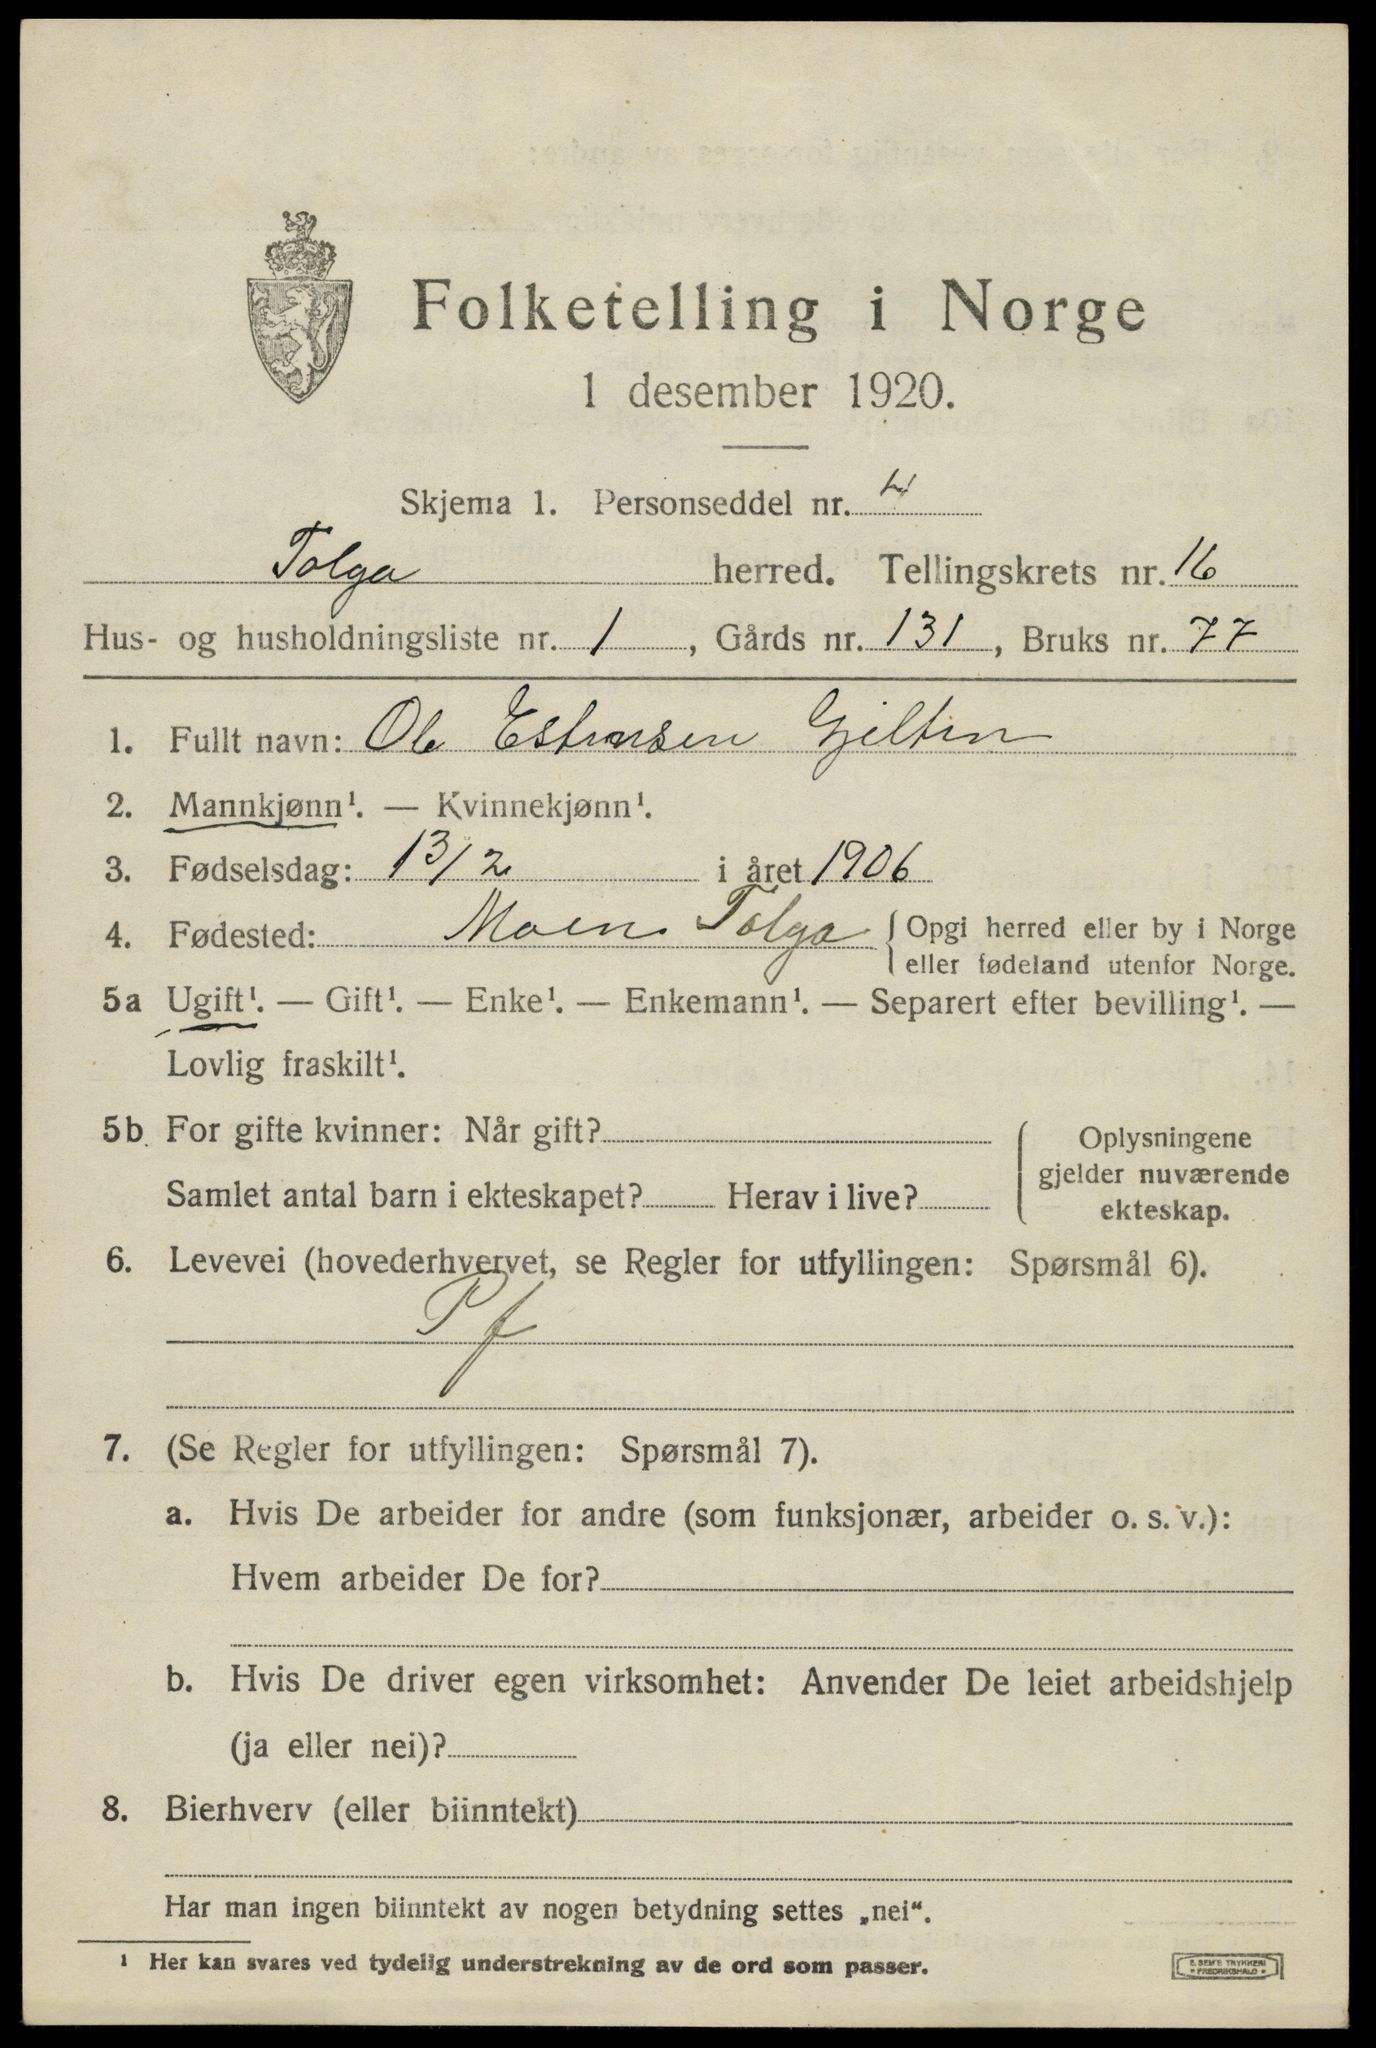 Folketelling i Norge
1 desember 1920.
Skjema 1. Personseddel nr. 4
Tolga herred. Tellingskrets nr. 16
Hus- og husholdningsliste nr. 1, Gårds nr. 131, Bruks nr. 77
1. Fullt navn: Ole Estensen Gjelten
2. Mannkjønn¹. — Kvinnekjønn¹.
3. Fødselsdag: 13/2 i året 1906
4. Fødested: Moen Tolga { Opgi herred eller by i Norge
eller fødeland utenfor Norge.
5a Ugift¹. — Gift¹. — Enke¹. — Enkemann¹. — Separert efter bevilling¹. —
Lovlig fraskilt¹.
5b. For gifte kvinner: Når gift?
Samlet antal barn i ekteskapet? Herav i live?
{ Oplysningene
gjelder nuværende
ekteskap.
6. Levevei (hovederhvervet, se Regler for utfyllingen: Spørsmål 6).
Pf
7. (Se Regler for utfyllingen: Spørsmål 7).
a. Hvis De arbeider for andre (som funksjonær, arbeider o. s. v.):
Hvem arbeider De for?
b. Hvis De driver egen virksomhet: Anvender De leiet arbeidshjelp
(ja eller nei)?
8. Bierhverv (eller biinntekt)
Har man ingen biinntekt av nogen betydning settes „nei“.
¹ Her kan svares ved tydelig understrekning av de ord som passer.
E. SEM'S TRYKKERI
FREDRIKSHALD